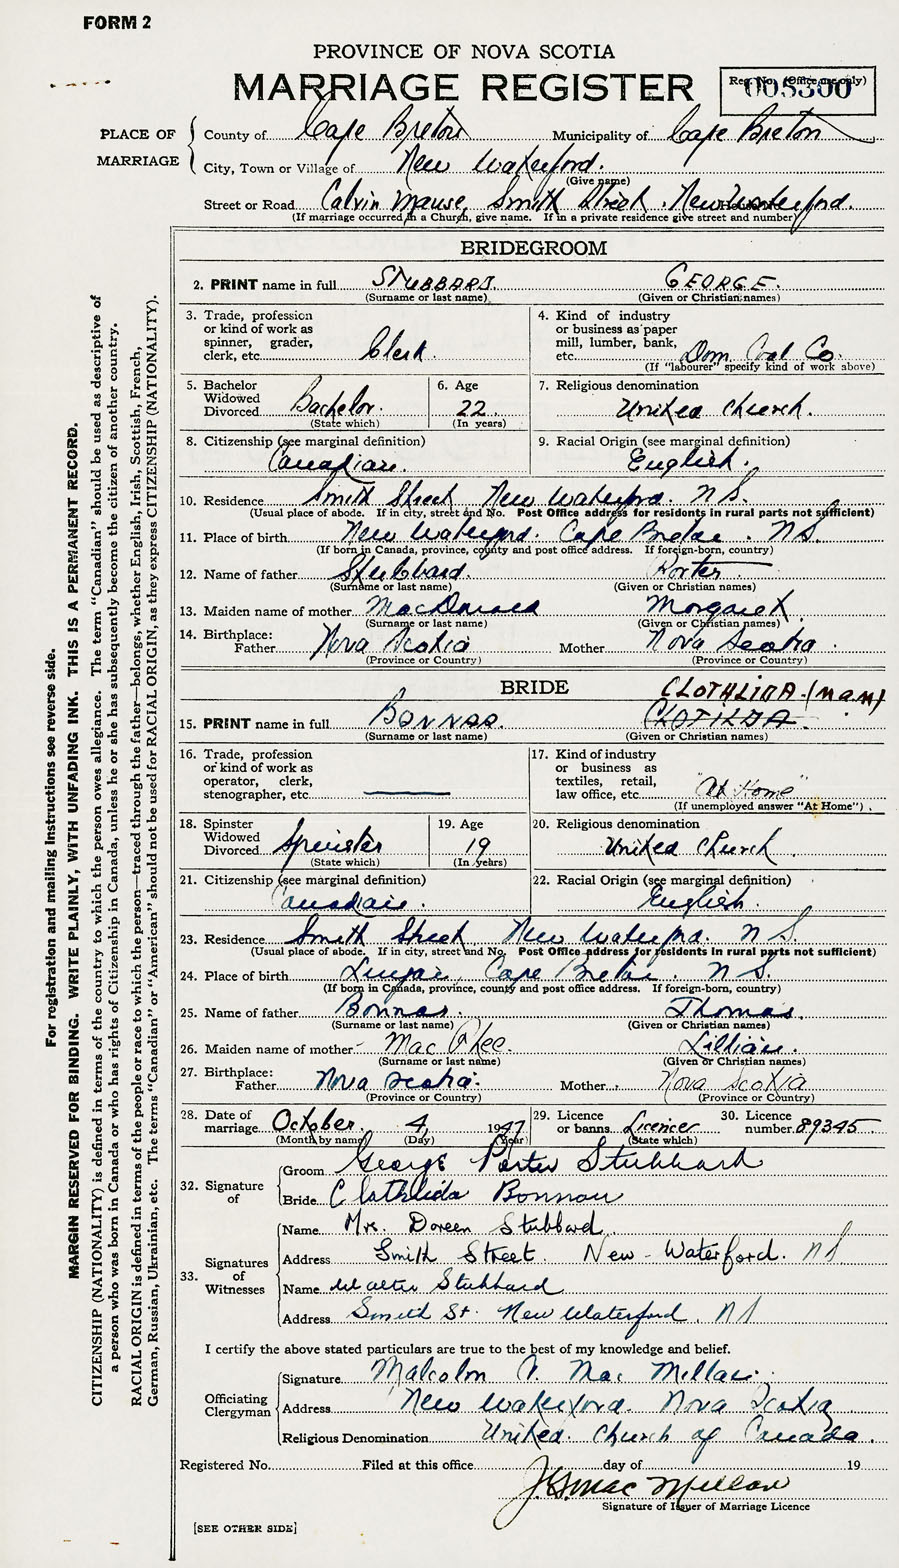 FORM 2
PROVINCE OF NOVA SCOTIA
MARRIAGE REGISTER
Reg. No. (Office use only)
005300
PLACE OF MARRIAGE
County of Cape Breton Municipality of Cape Breton
City, Town or Village of New Waterford.
(Give name)
Street or Road Calvin Manse, Smith Street. New Waterford.
(If marriage occurred in a Church, give name. If in a private residence give street and number)
BRIDEGROOM
2. PRINT name in full STUBBARD. GEORGE.
(Surname or last name) (Given or Christian names)
3. Trade, profession or kind of work as spinner, grader, clerk, etc. Clerk.
4. Kind of industry or business as paper mill, lumber, bank, etc. Dom. Coal Co.
(If "labourer" specify kind of work above)
5. Bachelor Widowed Divorced Bachelor.
(State which)
6. Age 22.
(In years)
7. Religious denomination United Church.
8. Citizenship (see marginal definition) Canadian.
9. Racial Origin (see marginal definition) English.
10. Residence Smith Street New Waterford. N S.
(Usual place of abode. If in city, street and No. Post Office address for residents in rural parts not sufficient)
11. Place of birth New Waterford. Cape Breton. N S.
(If born in Canada, province, county and post office address. If foreign-born, country)
12. Name of father Stubbard. Porter
(Surname or last name) (Given or Christian names)
13. Maiden name of mother MacDonald Margaret
(Surname or last name) (Given or Christian names)
14. Birthplace: Father Nova Scotia Mother Nova Scotia
(Province or Country) (Province or Country)
BRIDE CLOTHLIDA. (m.a.m)
15. PRINT name in full BONNAR. CLOTILDA.
(Surname or last name) (Given or Christian names)
16. Trade, profession or kind of work as operator, clerk, stenographer, etc.
17. Kind of industry or business as textiles, retail, law office, etc. "At Home"
(If unemployed answer "At Home")
18. Spinster Widowed Divorced Spinster
(State which)
19. Age 19
(In years)
20. Religious denomination United Church.
21. Citizenship (see marginal definition) Canadian.
22. Racial Origin (see marginal definition) English.
23. Residence Smith Street New Waterford. N S.
(Usual place of abode. If in city, street and No. Post Office address for residents in rural parts not sufficient)
24. Place of birth Lingan, Cape Breton. N S.
(If born in Canada, province, county and post office address. If foreign-born, country)
25. Name of father Bonnar. Thomas.
(Surname or last name) (Given or Christian names)
26. Maiden name of mother MacPhee. Lillian.
(Surname or last name) (Given or Christian names)
27. Birthplace: Father Nova Scotia. Mother Nova Scotia
(Province or Country) (Province or Country)
28. Date of marriage October. 4, 1947
(Month by name) (Day) (Year)
29. Licence or banns Licence
(State which)
30. Licence number 89345
32. Signature of
Groom George Porter Stubbard
Bride Clothlida Bonnar
33. Signatures of Witnesses
Name Mrs. Doreen Stubbard
Address Smith Street. New-Waterford. N S
Name Walter Stubbard
Address Smith St. New Waterford. N S
I certify the above stated particulars are true to the best of my knowledge and belief.
Officiating Clergyman
Signature Malcolm A. MacMillan.
Address New Waterford. Nova Scotia
Religious Denomination United Church of Canada.
Registered No. Filed at this office day of 19
J. G. MacMillan
Signature of Issuer of Marriage Licence
[SEE OTHER SIDE]
For registration and mailing instructions see reverse side.
MARGIN RESERVED FOR BINDING. WRITE PLAINLY, WITH UNFADING INK. THIS IS A PERMANENT RECORD.
CITIZENSHIP (NATIONALITY) is defined in terms of the country to which the person owes allegiance. The term "Canadian" should be used as descriptive of
a person who was born in Canada or who has rights of Citizenship in Canada, unless he or she has subsequently become the citizen of another country.
RACIAL ORIGIN is defined in terms of the people or race to which the person—traced through the father—belongs, whether English, Irish, Scottish, French,
German, Russian, Ukrainian, etc. The terms "Canadian" or "American" should not be used for RACIAL ORIGIN, as they express CITIZENSHIP (NATIONALITY).